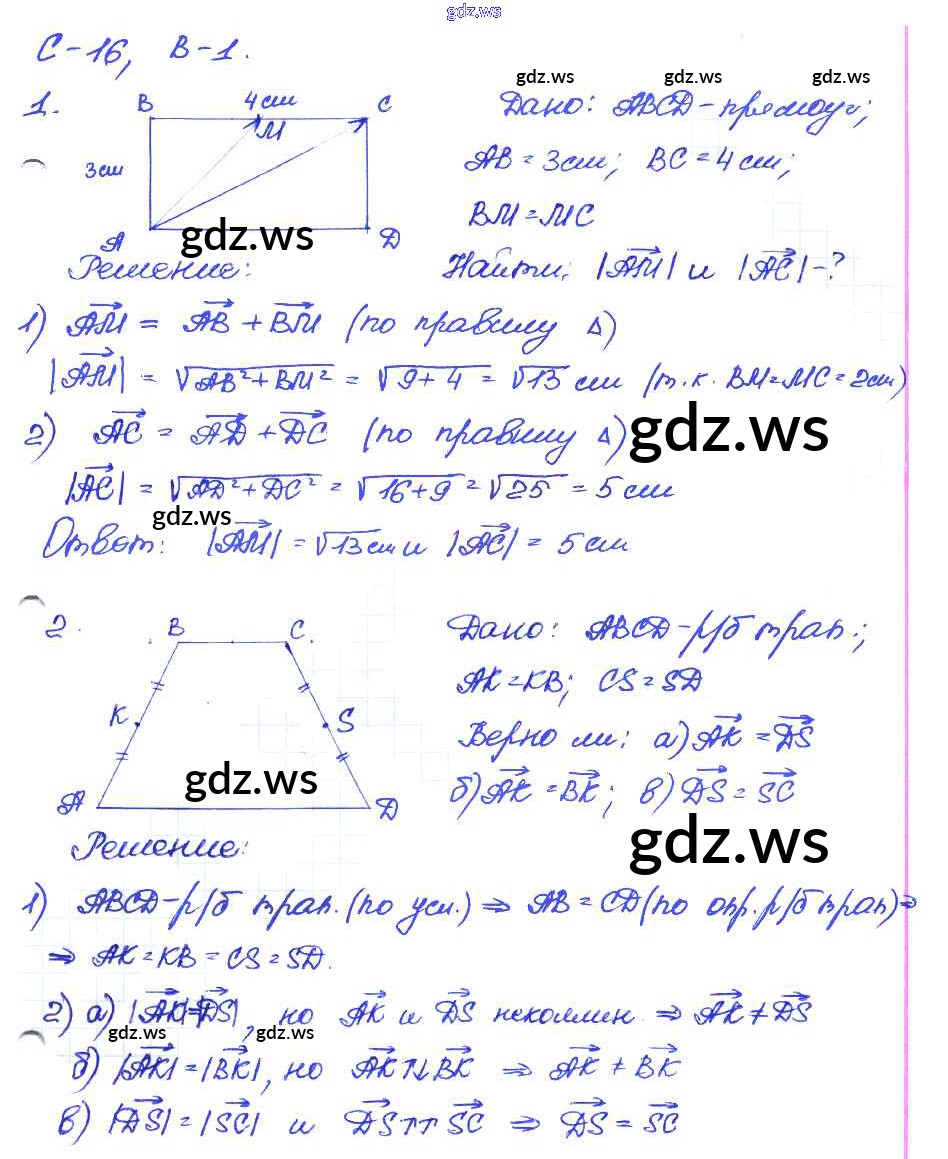 gdz.ws
С-16, В-1.
1. B 4см C
M
3см
A D
gdz.ws gdz.ws gdz.ws
Дано: ABCD-прямоуг;
AB = 3см; BC = 4см;
BM = MC
gdz.ws
Решение: Найти: |AM| и |AC| -?
1) AM = AB + BM (по правилу Δ)
|AM| = √AB²+BM² = √9+4 = √13 см (т.к. BM=MC=2см)
2) AC = AD + DC (по правилу Δ)
gdz.ws
|AC| = √AD²+DC² = √16+9 = √25 = 5см
gdz.ws
Ответ: |AM| = √13см и |AC| = 5см
2. B C.
K S
A D
gdz.ws
Дано: ABCD-р/б трап.;
AK=KB; CS=SD
Верно ли: а) AK = DS
б) AK = BK; в) DS = SC
gdz.ws
Решение:
1) ABCD-р/б трап. (по усл.) ⇒ AB = CD (по опр. р/б трап) ⇒
⇒ AK=KB=CS=SD.
2) а) |AK|=|DS|, но AK и DS неколлин. ⇒ AK ≠ DS
gdz.ws gdz.ws
б) |AK| = |BK|, но AK↑↓BK ⇒ AK ≠ BK
в) |DS| = |SC| и DS↑↑SC ⇒ DS = SC